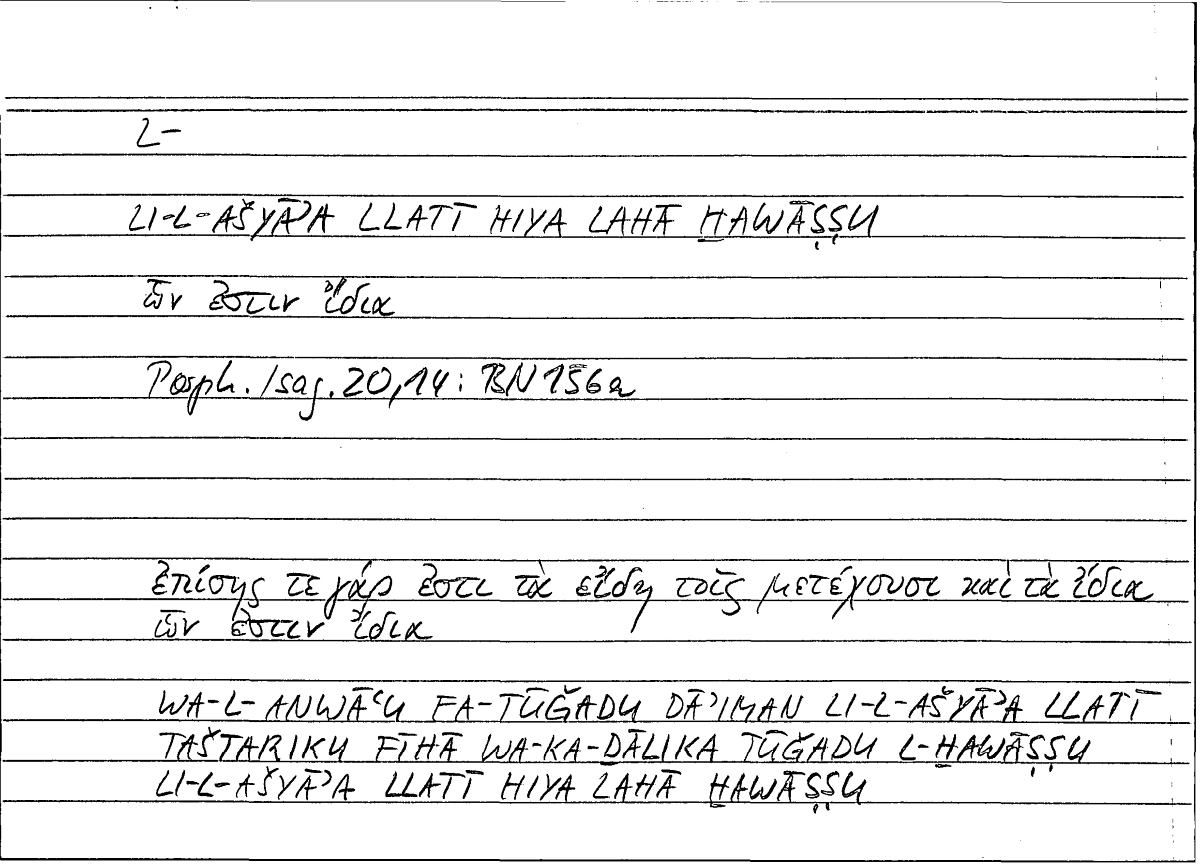 L-
LI-L-AŠYĀʾA LLATĪ HIYA LAHĀ ḪAWĀṢṢU
ὧν ἐστιν ἴδια
Porph. Isag. 20,14: BN 156a
ἐπίσης τε γάρ ἐστι τὰ εἴδη τοῖς μετέχουσι καὶ τὰ ἴδια
ὧν ἐστιν ἴδια
WA-L-ANWĀʿU FA-TŪǦADU DĀʾIMAN LI-L-AŠYĀʾA LLATĪ
TAŠTARIKU FĪHĀ WA-KA-ḎĀLIKA TŪǦADU L-ḪAWĀṢṢU
LI-L-AŠYĀʾA LLATĪ HIYA LAHĀ ḪAWĀṢṢU